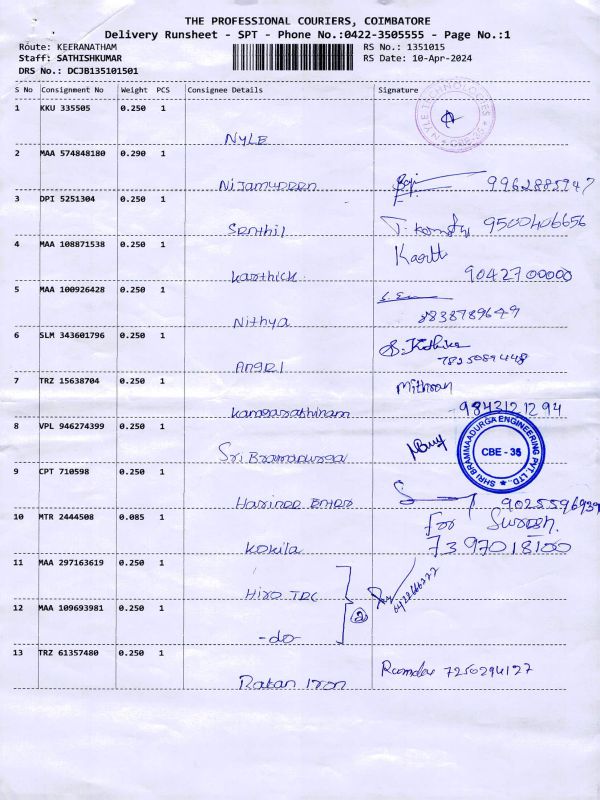 THE PROFESSIONAL COURIERS, COIMBATORE
Delivery Runsheet - SPT - Phone No.:0422-3505555 - Page No.:1
Route: KEERANATHAM
RS No.: 1351015
Staff: SATHISHKUMAR
RS Date: 10-Apr-2024
DRS No.: DCJB135101501
S No Consignment No Weight PCS Consignee Details Signature
1 KKU 335505 0.250 1
NYLE TECHNOLOGIES CBE-35
NYLE
2 MAA 574848180 0.290 1
Nijamudeen 9962885947
3 DPI 5251304 0.250 1
Senthil 9500406656
4 MAA 108871538 0.250 1
Karthick 9042700000
5 MAA 100926428 0.250 1
Nithya 8838789649
6 SLM 343601796 0.250 1
Angel
7 TRZ 15638704 0.250 1 Mithran
9843121294
8 VPL 946274399 0.250 1
SHRI BRAMMAADURGA ENGINEERING PVT. LTD., CBE - 35
Sri Bramadurga
9 CPT 710598 0.250 1
Harinee Enter 9025596939
10 MTR 2444508 0.085 1 for Suresh.
Kokila 7397018100
11 MAA 297163619 0.250 1
Hiro TEC
12 MAA 109693981 0.250 1 2
-do-
13 TRZ 61357480 0.250 1
7250294127
Ratan Iron